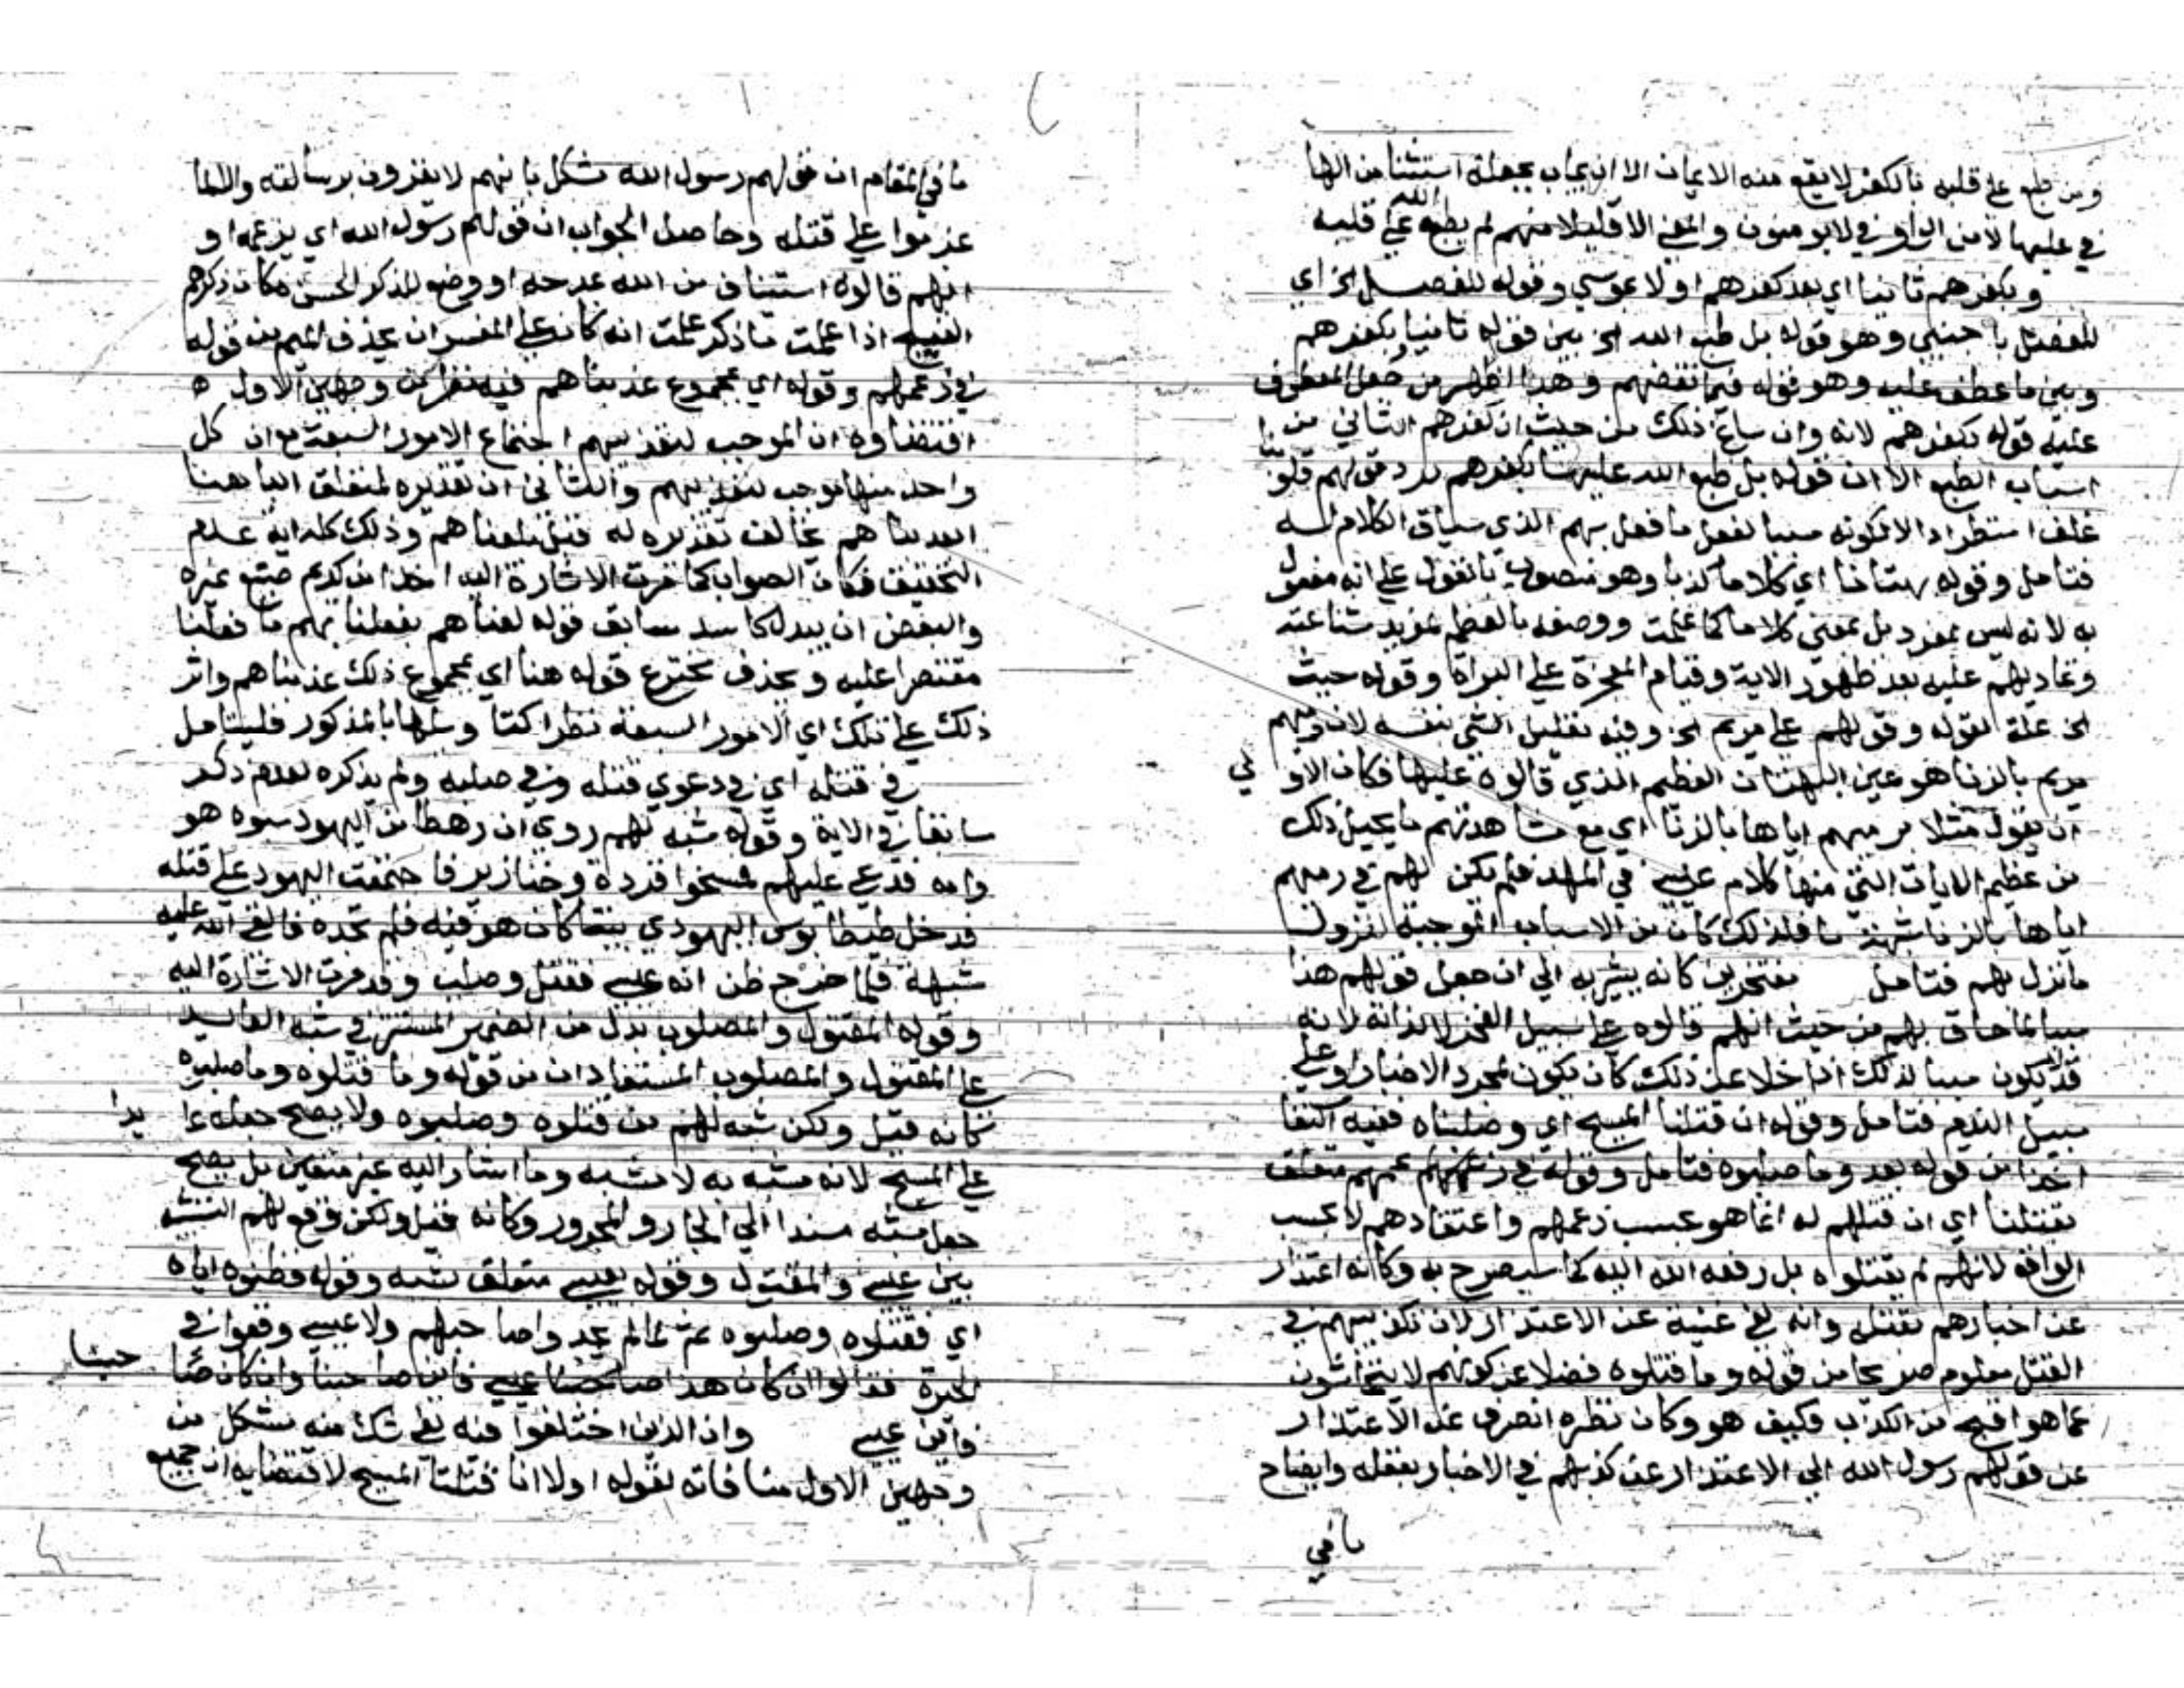 ومن طبع على قلبه بالكفر لا يقع منه الايمان الا ان يجاب بجعله استثنا من الها
في عليها لا من الواو في لا يومنون والمعنى الا قليلا منهم لم يطبع الله على قلبه
وبكفرهم ثانيا اي بعد كفرهم اولا بموسى وقوله للفصل الخ اي
للفصل باجنبي وهو قوله بل طبع الله الخ بين قوله ثانيا بكفرهم
وبين ما عطف عليه وهو قوله فبما نقضهم وهذا اظهر من جعل المعطوف
عليه قوله بكفرهم لانه وان ساغ ذلك من حيث ان كفرهم الثاني من
اسباب الطبع الا ان قوله بل طبع الله عليها بكفرهم رد قولهم قلوبنا
غلف استطراد الا لكونه سببا لفعل ما فعل بهم الذي سياق الكلام له
فتامل وقوله بهتانا اي كلاما كذبا وهو منصوب بالقول على انه مفعول
به لانه ليس بمفرد بل بمعنى كلاما كما علمت ووصفه بالعظم لمزيد شناعته
وتماديهم عليه بعد ظهور الاية وقيام المعجزة على البراة وقوله حيث
الخ علة لقوله وقولهم على مريم الخ وفيه تعليل الشي بنفسه لان رميهم
مريم بالزنا هو عين البهتان العظيم الذي قالوه عليها فكان الاولى
ان يقول مثلا برميهم اياها بالزنا اي مع مشاهدتهم ما يحيل ذلك
من عظيم الايات التي منها كلام عيسى في المهد فلم يكن لهم في رميهم
اياها بالزنا شبهة ما فلذلك كان من الاسباب الموجبة لنزول
ما نزل بهم فتامل مفتخرين كانه يشير به الى ان جعل قولهم هذا
سببا لما حاق بهم من حيث انهم قالوه على سبيل الفخر لا لذاته لانه
قد لا يكون سببا لذلك اذا خلا عن ذلك كان يكون لمجرد الاخبار او على
سبيل الندم فتامل وقوله ان قتلنا المسيح اي وصلبناه ففيه اكتفا
اخذا من قوله بعد وما صلبوه فتامل وقوله في زعمهم متعلق
بقتلنا اي ان قتلهم له انما هو بحسب زعمهم واعتقادهم لا بحسب
الواقع لانهم لم يقتلوه بل رفعه الله اليه كما سيصرح به وكانه اعتذار
عن اخبارهم بقتله وانه لفي غنية عن الاعتذار لان تكذيبهم في
القتل معلوم صريحا من قوله وما قتلوه فضلا عن كونهم لا يتحاشون
عما هو اقبح من الكذب فكيف هو وكان نظره انصرف عن الاعتذار
عن قولهم رسول الله الى الاعتذار عن كذبهم في الاخبار بقتله وايضاح
ما في
ما في المقام ان قولهم رسول الله مشكل بانهم لا يقرون برسالته والا لما
عزموا على قتله وحاصل الجواب ان قولهم رسول الله اي بزعمه او
انهم قالوه استيناف من الله بمدحه او وضع للذكر الحسن مكان ذكرهم
القبيح اذا علمت ما ذكر علمت انه كان على المفسر ان يحذف الميم من قوله
في زعمهم وقوله اي بمجموع عذبناهم فيه نظر من وجهين الاول
اقتضاوه ان الموجب لتعذيبهم اجتماع الامور السبعة مع ان كل
واحد منها موجب لتعذيبهم والثاني ان تقديره لمتعلق البا هنا
بعذبناهم يخالف تقديره له قبل بلعناهم وذلك كله اية عدم
التحقيق فكان الصواب كما مرت الاشارة اليه اخذا من كلام صنيع غيره
والبعض ان يبدل سابق قوله لعناهم بفعلنا بهم ما فعلنا
مقتصرا عليه ويحذف مخترع قوله هنا اي بمجموع ذلك عذبناهم واثر
ذلك على تلك اي الامور السبعة نظرا وسلها بالمذكور فليتامل
في قتله اي في دعوى قتله وفي صلبه ولم يذكره لعدم ذكر
سابقا في الاية وقوله شبه لهم روي ان رهطا من اليهود سبوه هو
وامه فدعى عليهم فمسخوا قردة وخنازير فاجتمعت اليهود على قتله
فدخل طيطانوس اليهودي بيتا كان هو فيه فلم يجده فالقى الله عليه
شبهه فلما خرج ظن انه عيسى فقتل وصلب وقد مرت الاشارة اليه
وقوله المقتول والمصلوب بدل من الضمير المستتر في شبه العايد
على المقتول والمصلوب المستفادان من قوله وما قتلوه وما صلبوه
كانه قيل ولكن شبه لهم من قتلوه وصلبوه ولا يصح جعله عايدا
على المسيح لانه مشبه به لا مشبه وما اشار اليه غير متعين بل يصح
جعل شبه مسندا الى الجار والمجرور وكانه قيل ولكن وقع لهم التشبيه
بين عيسى والمقتول وقوله بعيسى متعلق بشبه وقوله فظنوه اياه
اي فقتلوه وصلبوه ثم لما لم يجدوا صاحبهم ولا عيسى وقعوا في
الحيرة فقالوا ان كان هذا عيسى فاين صاحبنا وان كان صاحبنا
فاين عيسى وان الذين اختلفوا فيه لفي شك منه يشكل من
وجهين الاول منافاته لقوله اولا انا قتلنا المسيح لاقتضايه ان جميع